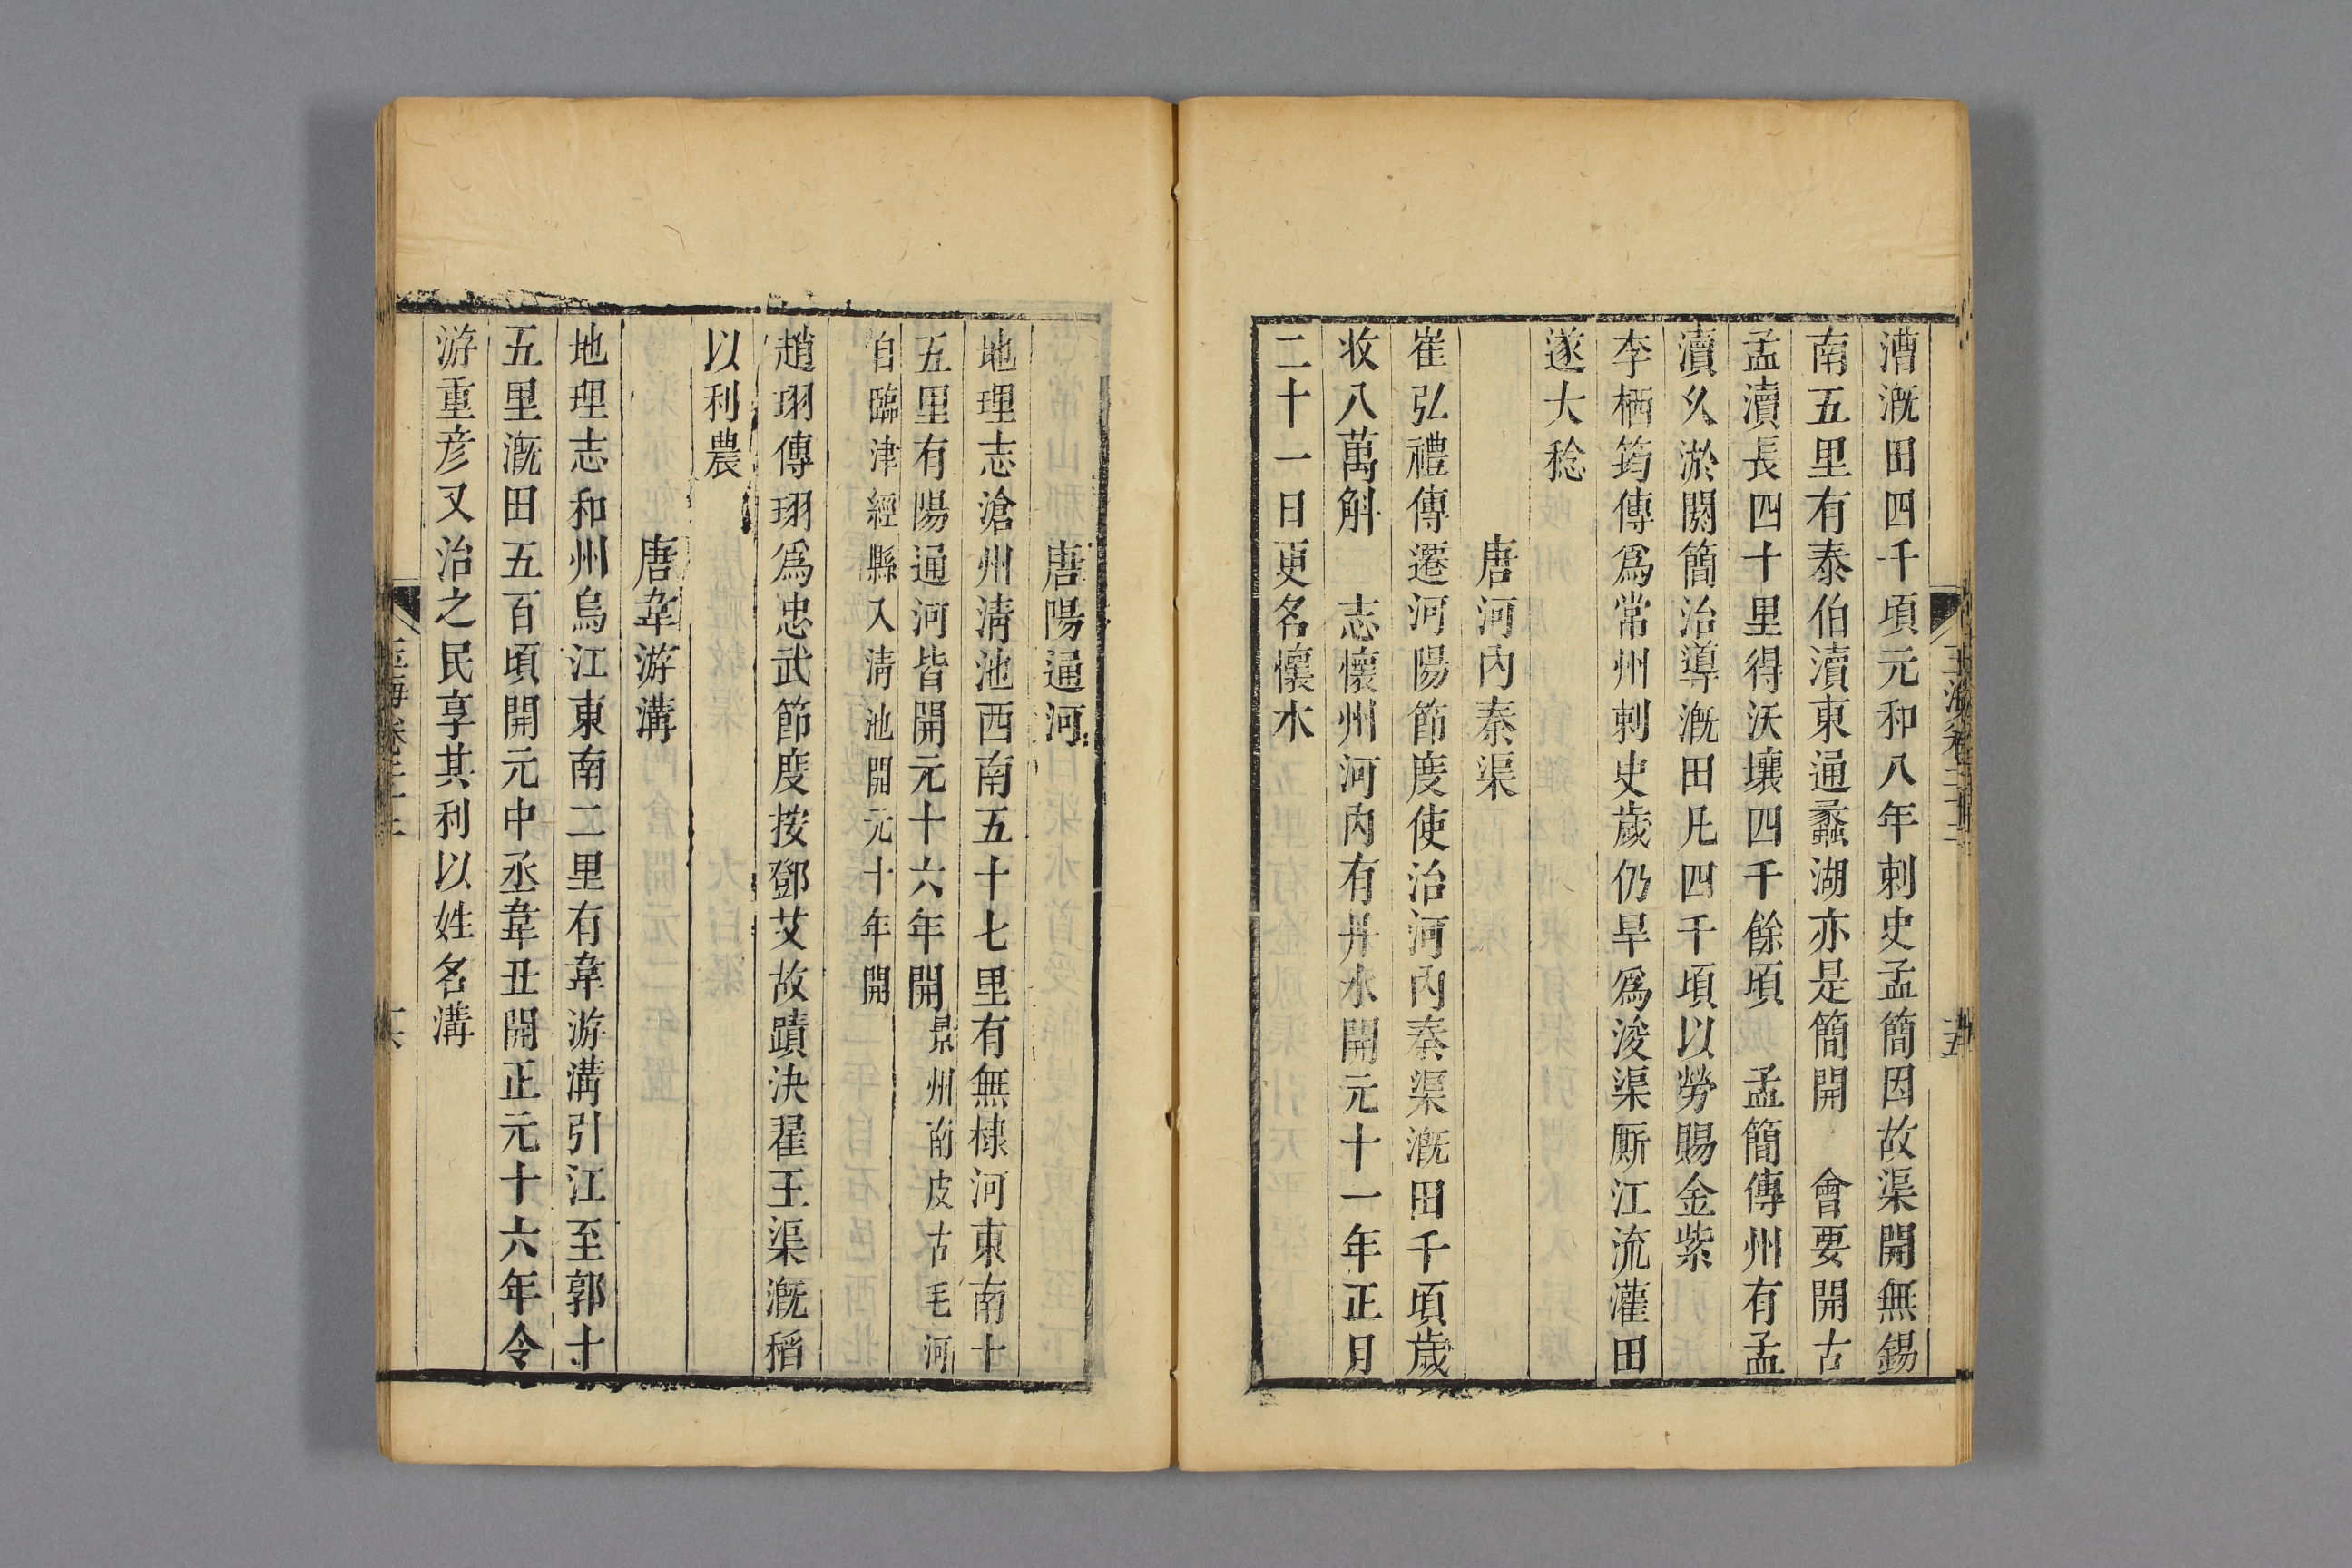 漕漑田四千頃元和八年刺史孟簡因故渠開無錫
南五里有泰伯瀆東通蠡湖亦是簡開　會要開古
孟瀆長四十里得沃壤四千餘頃　孟簡傳州有孟
瀆久淤閼簡治導漑田凡四千頃以勞賜金紫
李栖筠傳爲常州刺史歲仍旱爲浚渠厮江流灌田
遂大稔
唐河內秦渠
崔弘禮傳遷河陽節度使治河內秦渠漑田千頃歲
收八萬斛　志懷州河內有丹水開元十一年正月
二十一日更名懷水
唐陽通河
地理志滄州清池西南五十七里有無棣河東南十
五里有陽通河皆開元十六年開景州南皮古毛河
自臨津經縣入清池開元十年開
趙珝傳珝爲忠武節度按鄧艾故蹟決翟王渠漑稻
以利農
唐韋游溝
地理志和州烏江東南二里有韋游溝引江至郭十
五里漑田五百頃開元中丞韋丑開正元十六年令
游重彦又治之民享其利以姓名溝